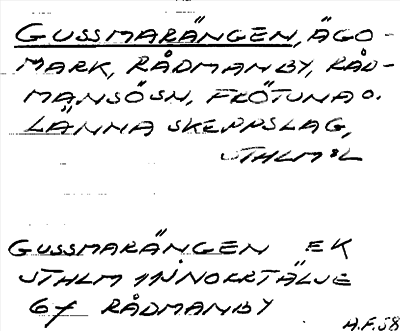 GUSSMARÄNGEN, ÄGO-
MARK, RÅDMANBY, RÅD-
MANSÖSN, FRÖTUNA O.
LÄNNA SKEPPSLAG,
STHLMSL
GUSSMARÄNGEN EK
STHLM 11J NORRTÄLJE
6f RÅDMANBY
H.F. 58